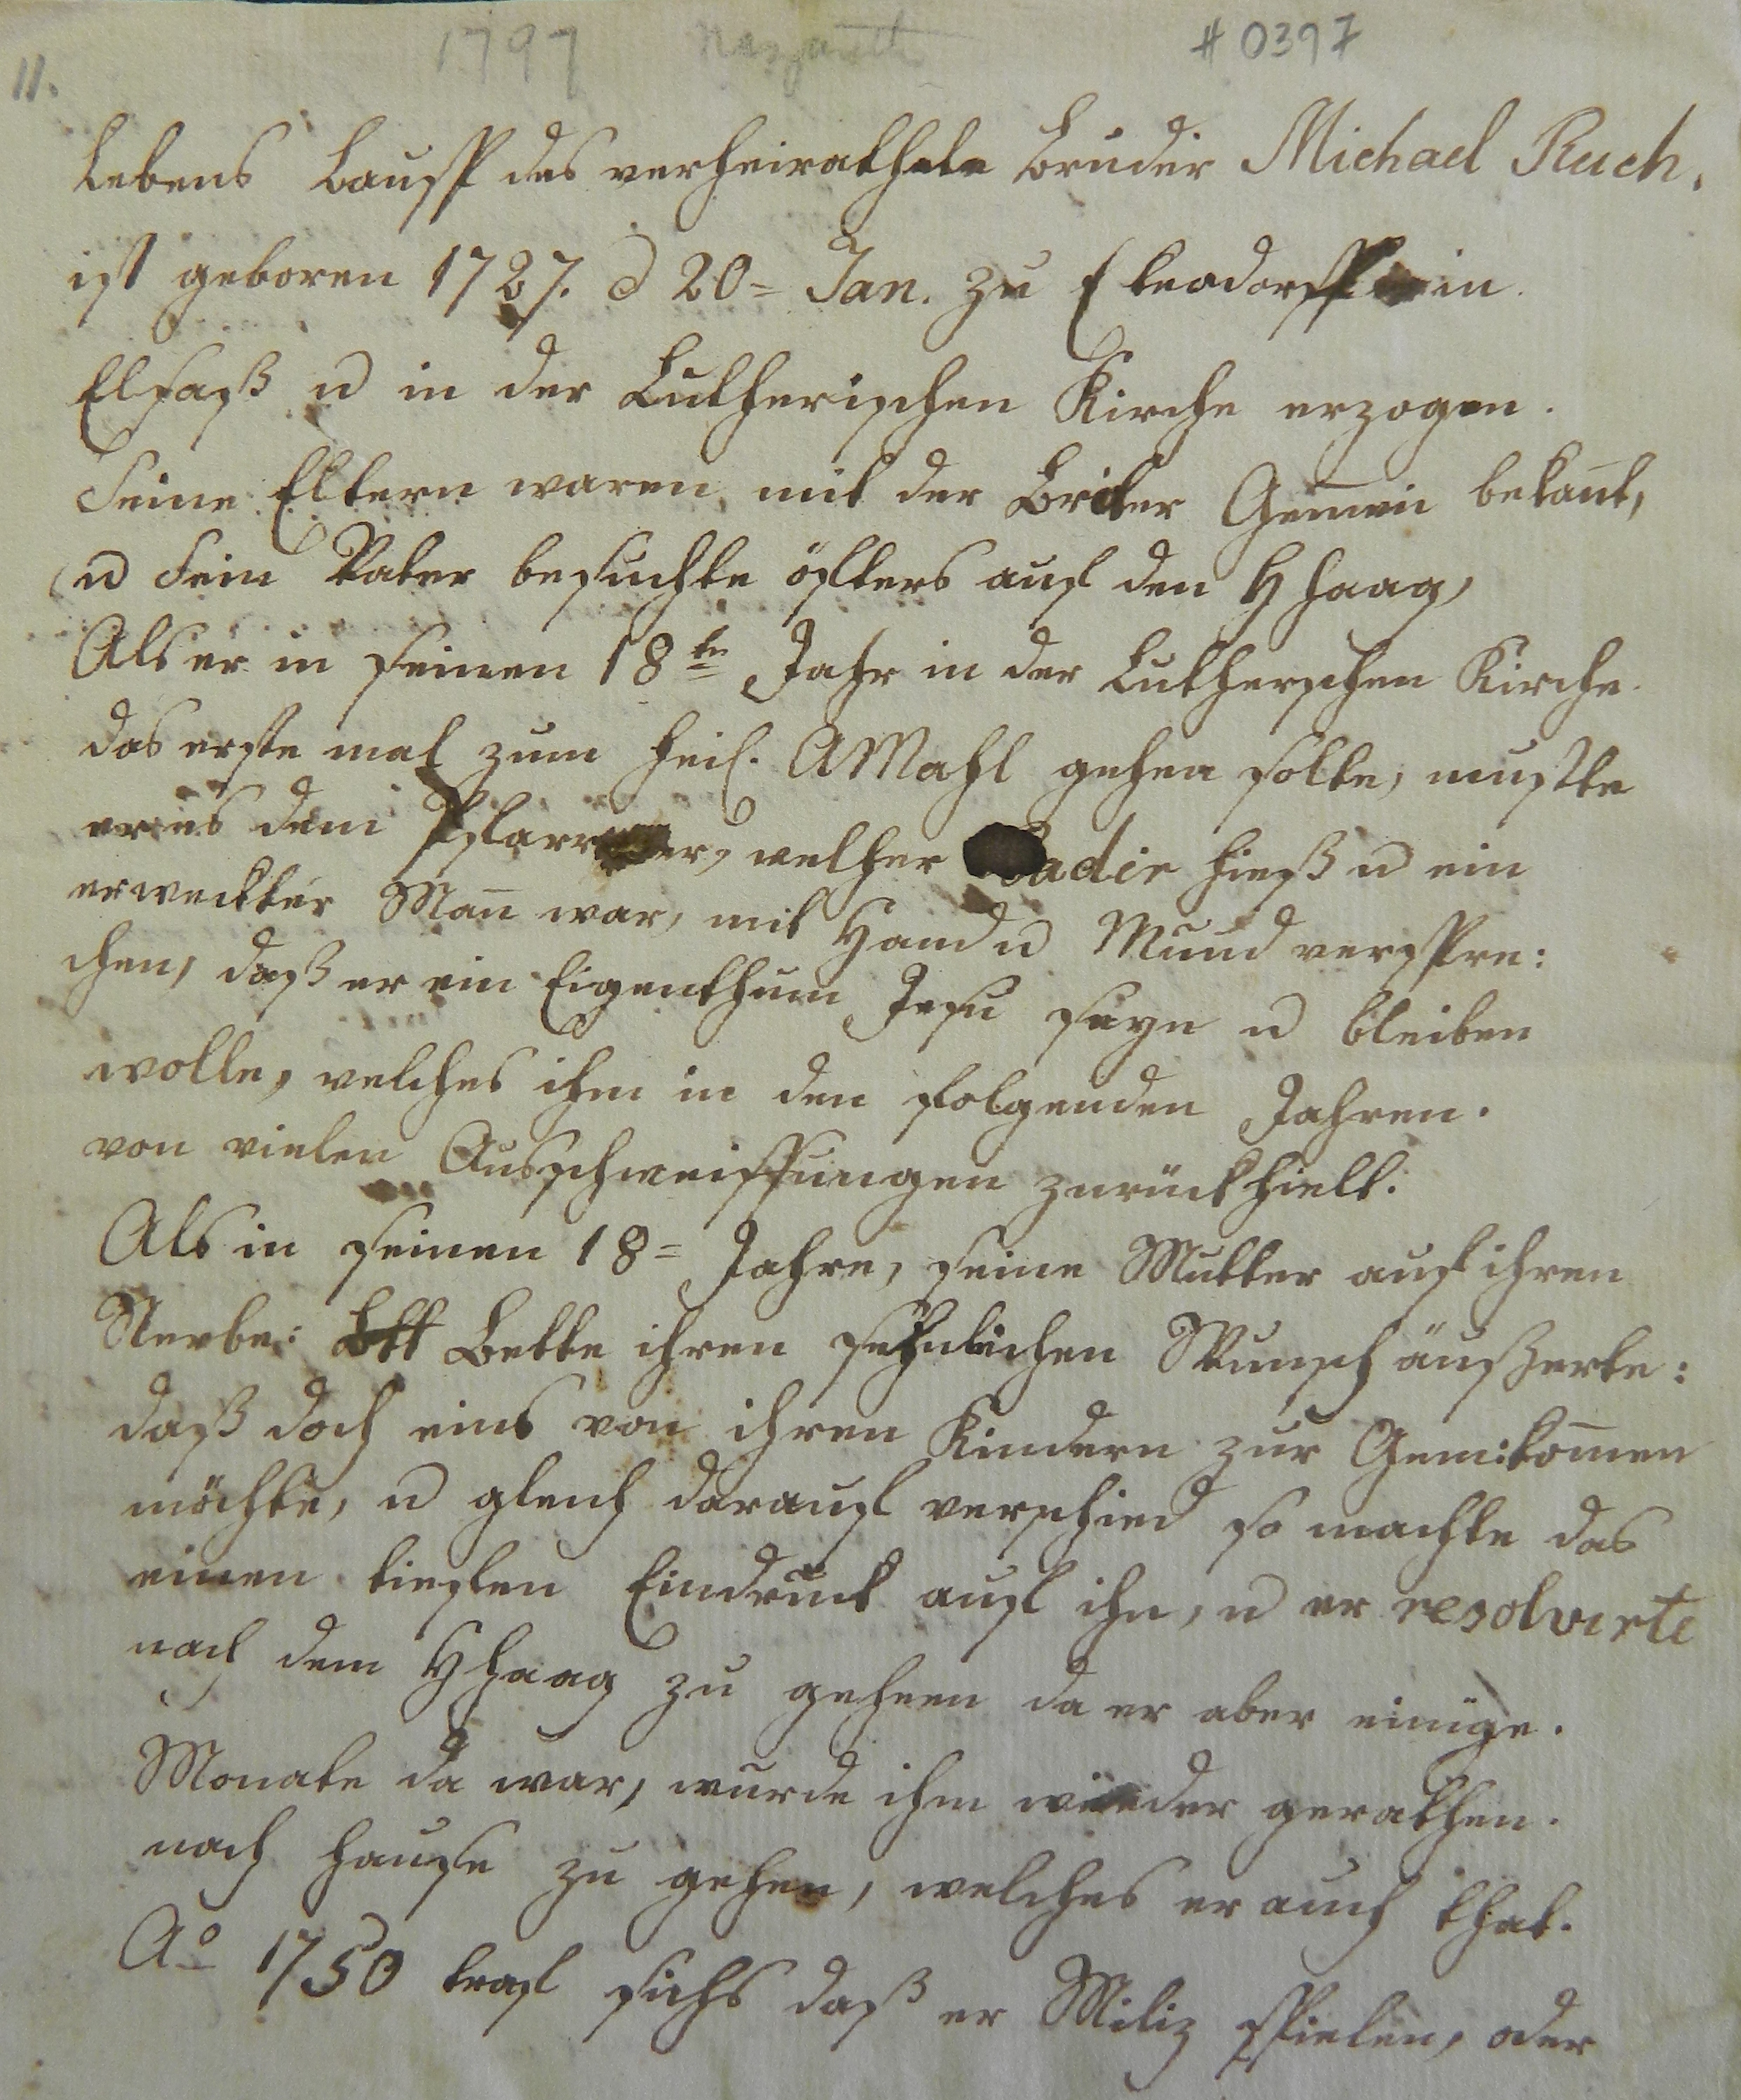 1797 Nazareth # 0397
11.
Lebens Lauff des verheirathete Bruder Michael Ruch,
ist geboren 1727. d 20= Jan. zu in
Elsaß u in der Lutherischen Kirche erzogen.
Seine Eltern waren mit der Brüder Gemein bekañt,
u sein Vater besuchte öfters auf den HHaag,
Als er in seinen 18tn Jahr in der Lutherschen Kirche
das erste mal zum heil. AMahl gehen solte, mustte
er es dem Pfarrer, welcher hieß u ein
erweckter Mañ war, mit Hand u Mund verspre:
chen, daß er ein Eigenthum Jesu seyn u bleiben
wolle, welches ihn in den folgenden Jahren.
von vielen Ausschweiffungen zurückhielt.
Als in seinen 18= Jahre, seine Mutter auf ihren
Sterbe: Bett Bette ihren sehnlichen Wunsch äußerte:
daß doch eins von ihren Kindern zur Gem: kom̄en
möchte, u gleich darauf verschied so machte das
einen tiefen Eindruck auf ihn, u er resolvirte
nach dem HHaag zu gehen da er aber einige.
Monate da war, wurde ihm wieder gerathen.
nach Hause zu gehen, welches er auch that.
Ao 1750 traf sichs daß er Miliz spielen, oder